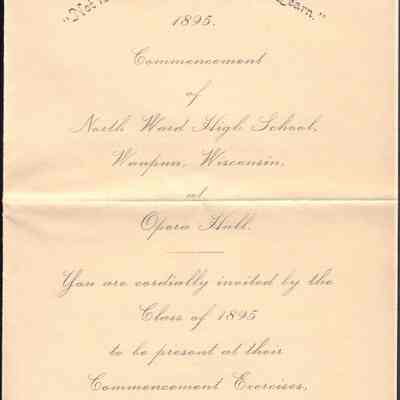 "Not
Learn."
1895.
Commencement
of
North Ward High School,
Waupun, Wisconsin,
at
Opera Hall.
You are cordially invited by the
Class of 1895
to be present at their
Commencement Exercises,